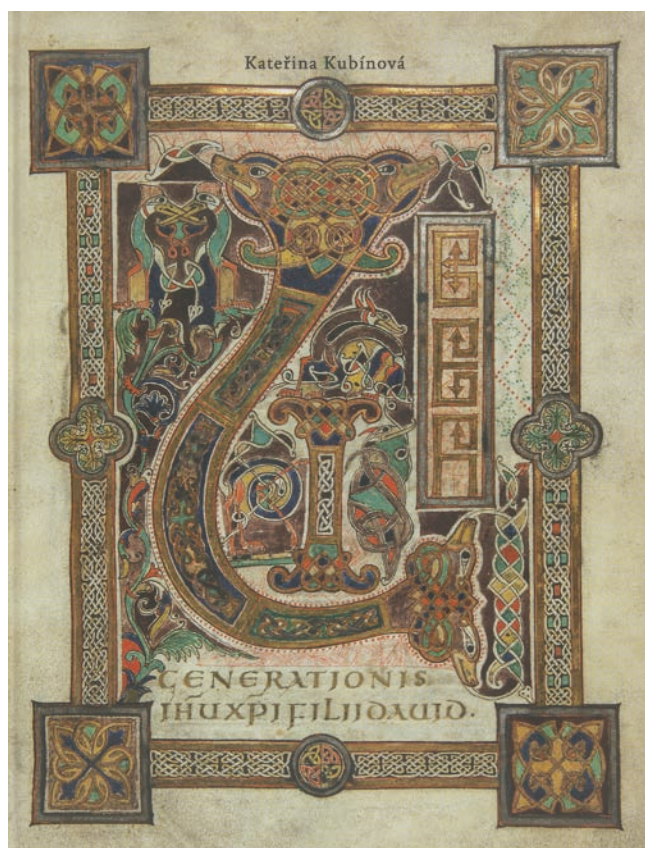 Kateřina Kubínová
GENERATIONIS
IHU XPI FILII DAUID.